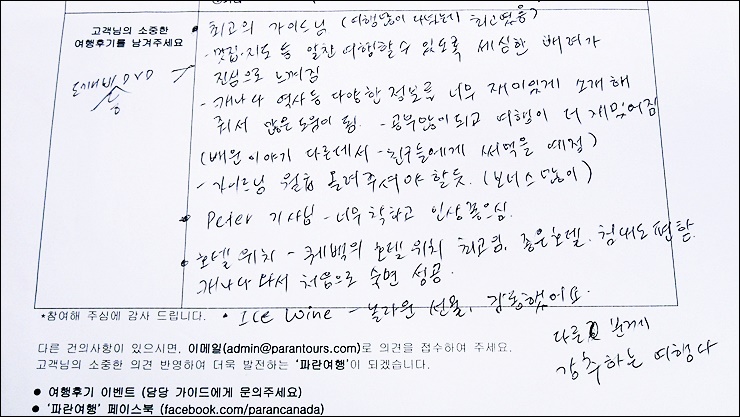 고객님의 소중한
여행후기를 남겨주세요
도깨비 DVD
• 최고의 가이드님 (여행많이 다녔는데 최고였음)
- 맛집·지도 등 알찬 여행할 수 있도록 세심한 배려가
진심으로 느껴짐
- 캐나다 역사 등 다양한 정보를 너무 재미있게 소개해
줘서 많은 도움이 됨. - 공부많이되고 여행이 더 재밌어짐
(배운 이야기 다른데서 - 친구들에게 써먹을 예정)
- 가이드님 월급 올려주셔야 할듯. (보너스 많이)
• Peter 기사님 - 너무 착하고 인상 좋으심.
• 호텔 위치 - 퀘벡의 호텔 위치 최고임, 좋은호텔. 침대도 편함.
캐나다 와서 처음으로 숙면 성공.
• Ice Wine - 놀라운 선물, 감동했어요.
*참여해 주심에 감사 드립니다.
다른 분께
강추하는 여행사
다른 건의사항이 있으시면, 이메일(admin@parantours.com)로 의견을 접수하여 주세요.
고객님의 소중한 의견 반영하여 더욱 발전하는 '파란여행'이 되겠습니다.
● 여행후기 이벤트 (담당 가이드에게 문의주세요)
● '파란여행' 페이스북 (facebook.com/parancanada)